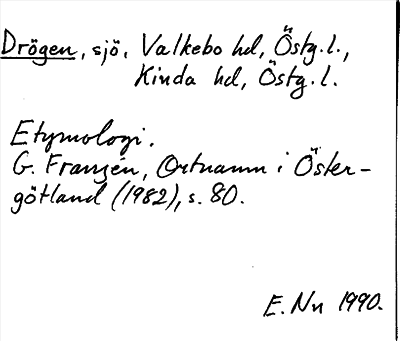 Drögen, sjö, Valkebo hd, Östg.l.,
Kinda hd, Östg.l.
Etymologi.
G. Franzén, Ortnamn i Öster-
götland (1982), s. 80.
E. Nn 1990.